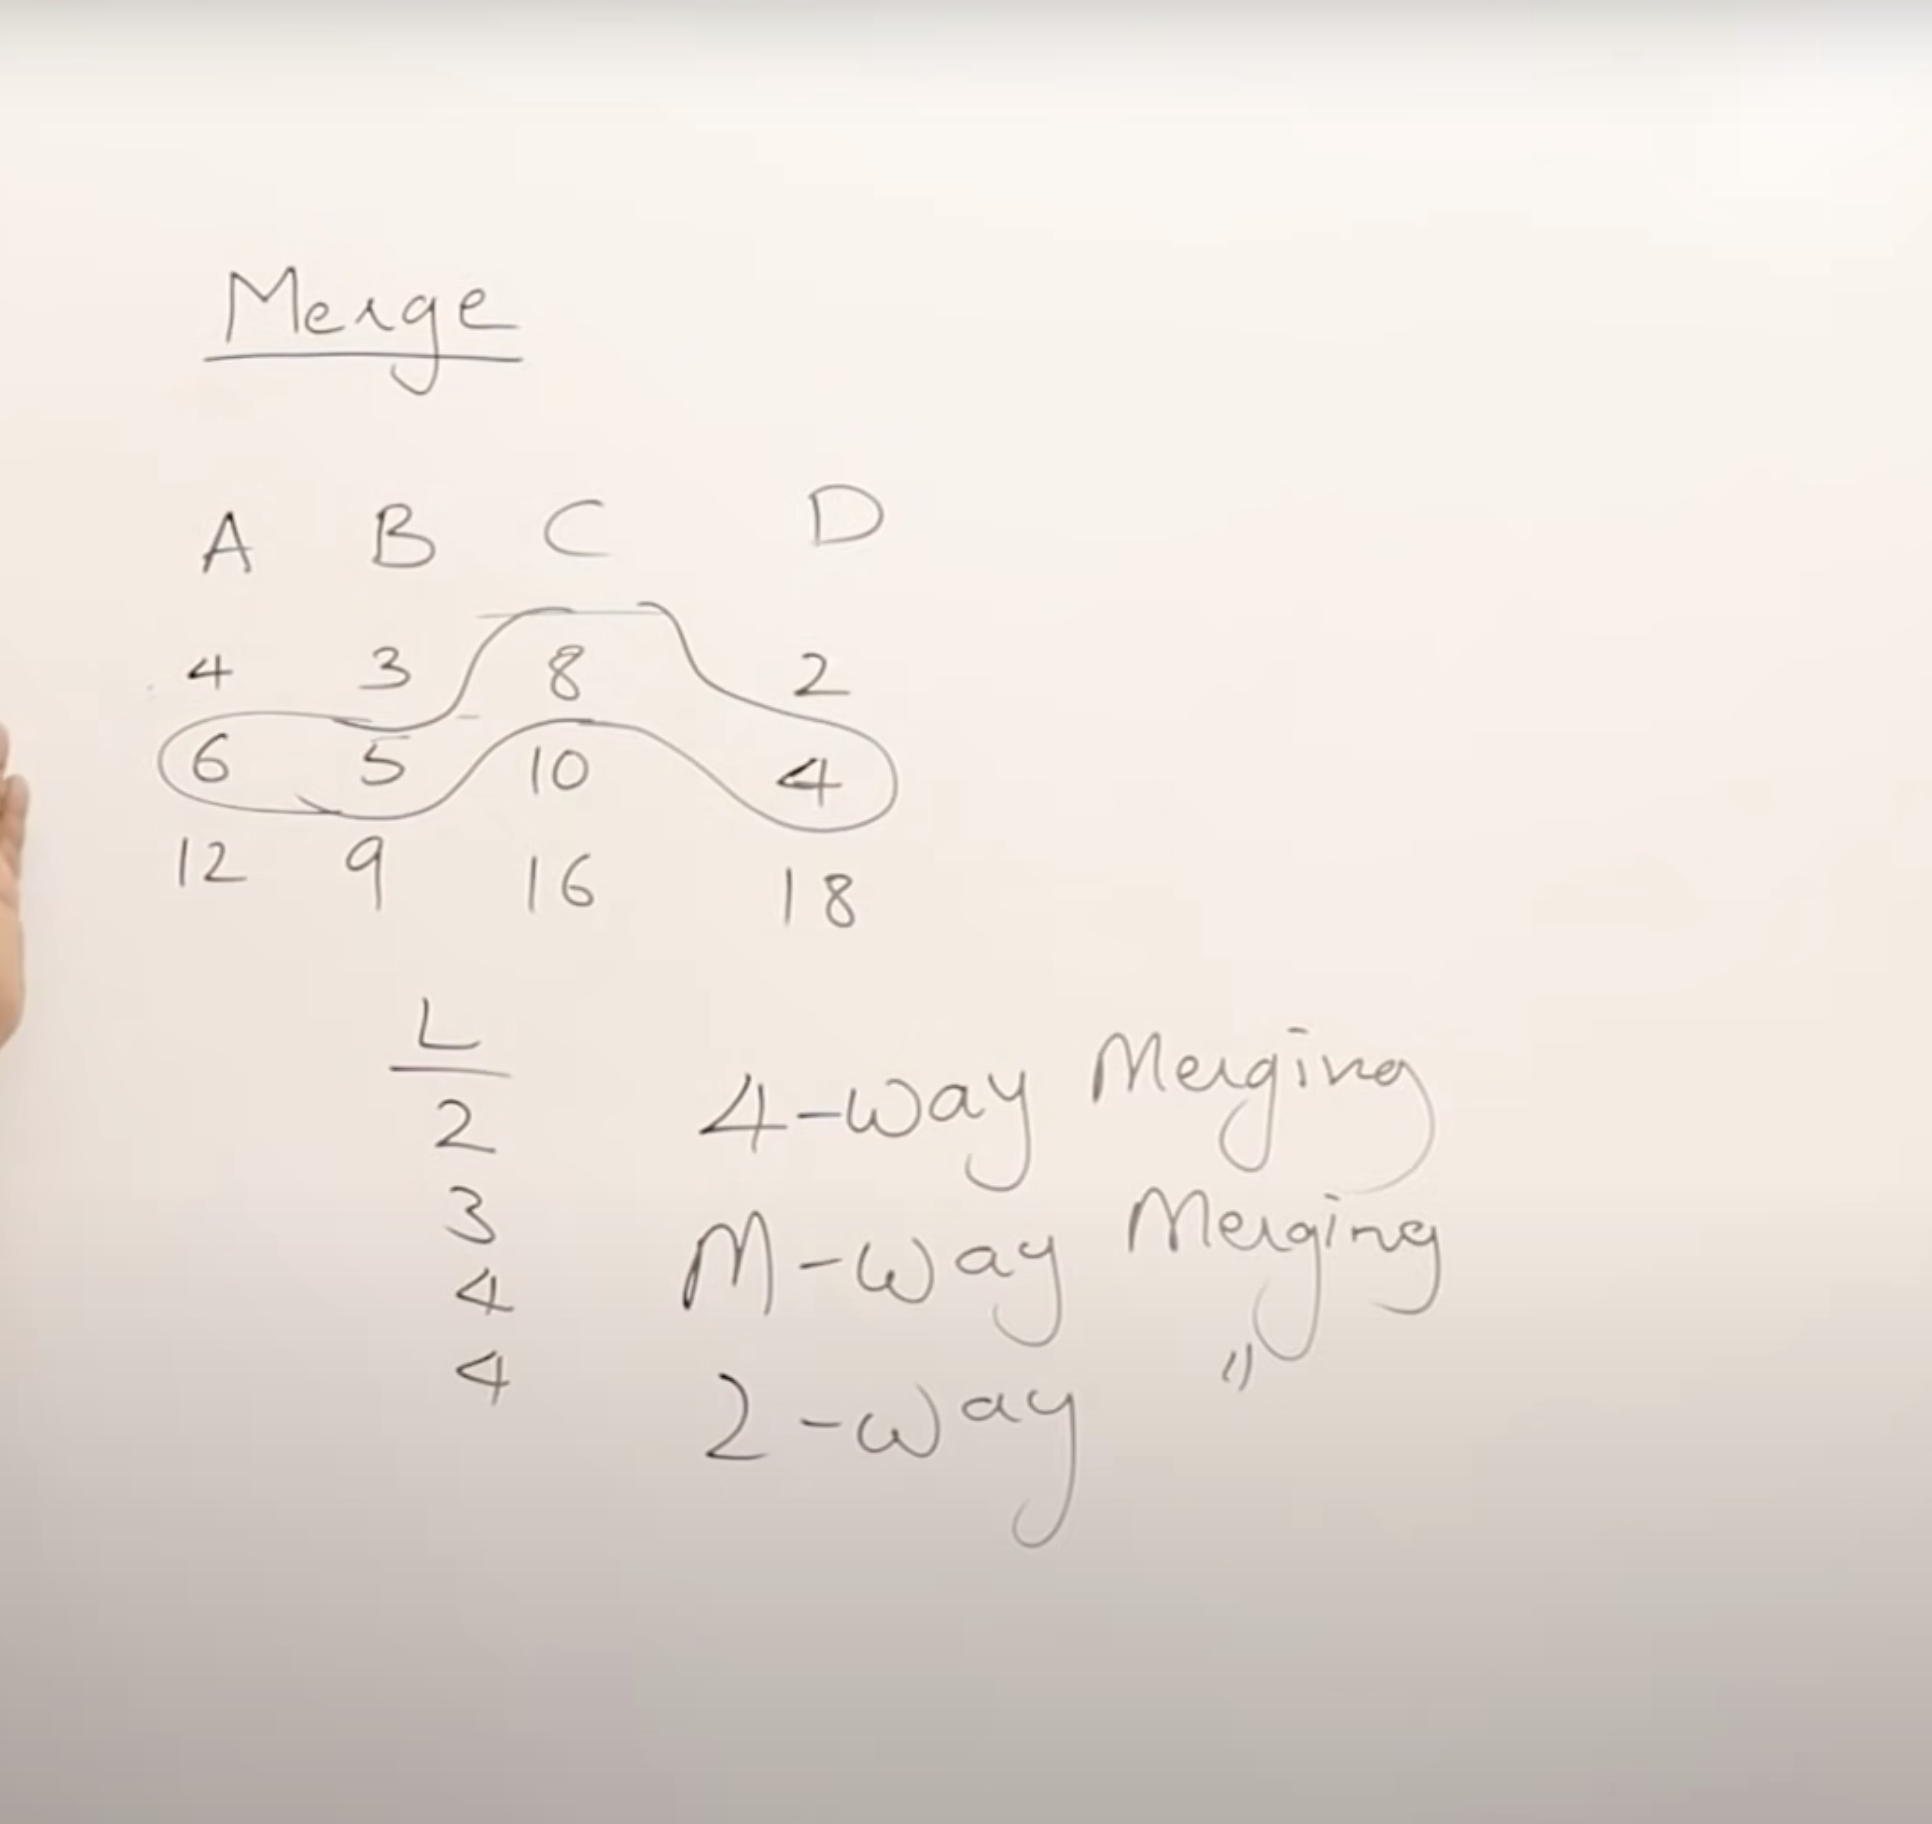 Merge
A B C D
4 3 8 2
6 5 10 4
12 9 16 18
L
2
3
4
4
4-way Merging
M-way Merging
2-way "